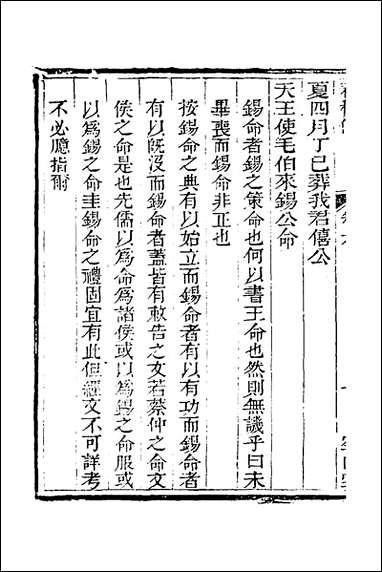 夏四月丁巳葬我君僖公
天王使毛伯來錫公命
錫命者錫之策命也何以書王命也然則無譏乎曰未
畢喪而錫命非正也
按錫命之典有以始立而錫命者有以有功而錫命者
有以旣沒而錫命者蓋皆有敕告之文若蔡仲之命文
侯之命是也先儒以爲命爲諸侯或以爲錫之命服或
以爲錫之命圭錫命之禮固宜有此但經文不可詳考
不必臆指爾